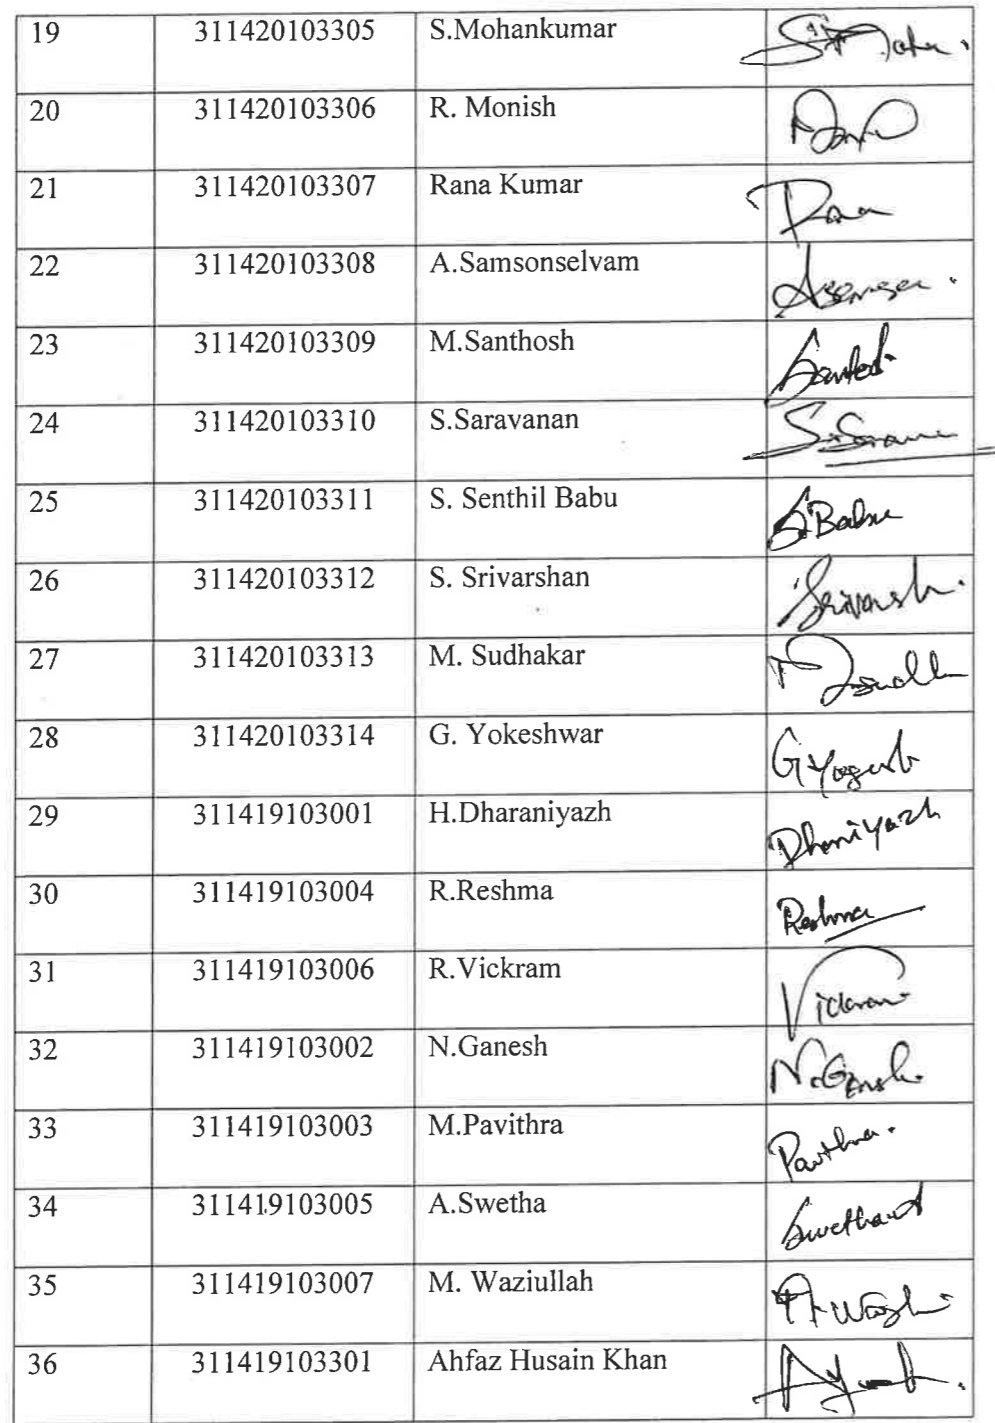 19 311420103305 S.Mohankumar
20 311420103306 R. Monish
21 311420103307 Rana Kumar Rana
22 311420103308 A.Samsonselvam
23 311420103309 M.Santhosh
24 311420103310 S.Saravanan
25 311420103311 S. Senthil Babu S.Babu
26 311420103312 S. Srivarshan
27 311420103313 M. Sudhakar
28 311420103314 G. Yokeshwar
29 311419103001 H.Dharaniyazh
30 311419103004 R.Reshma Reshma
31 311419103006 R.Vickram
32 311419103002 N.Ganesh N.Ganesh
33 311419103003 M.Pavithra
34 311419103005 A.Swetha
35 311419103007 M. Waziullah
36 311419103301 Ahfaz Husain Khan